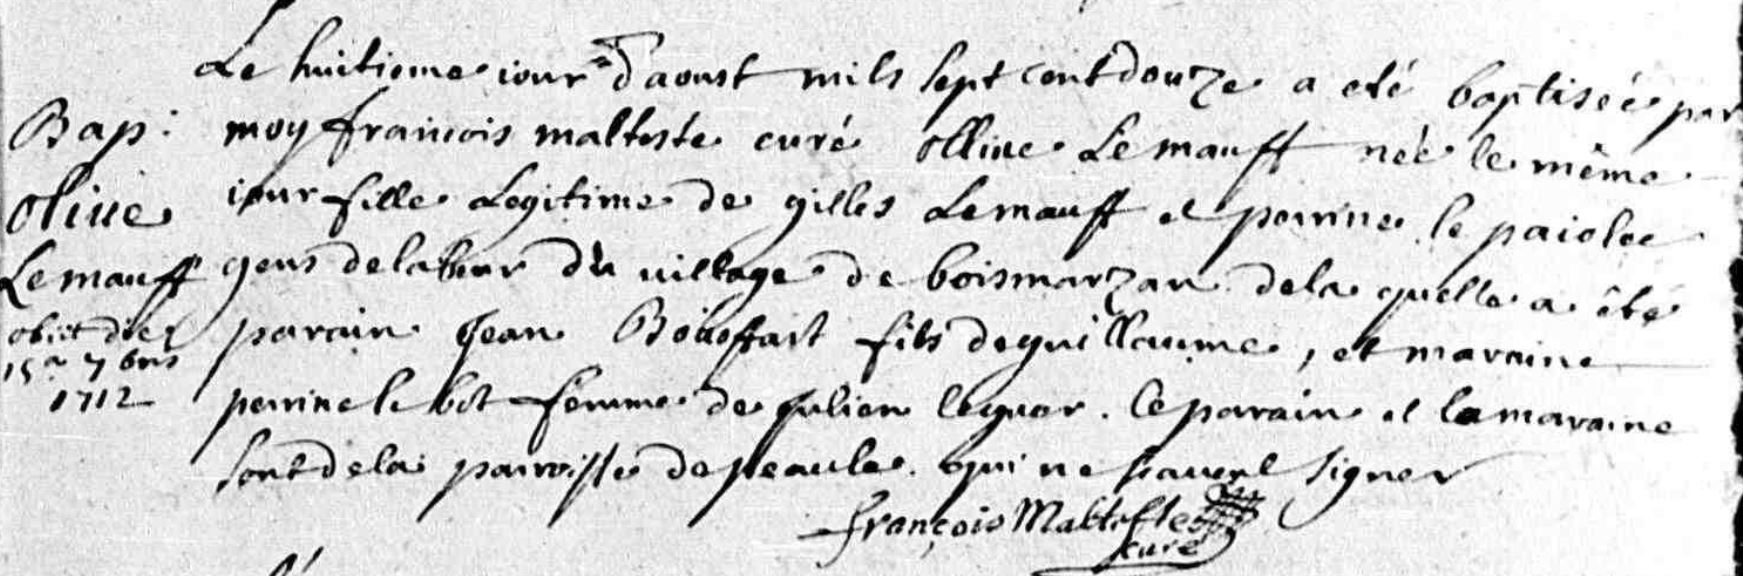 Le huitieme iour d'aoust mils sept cent douze a eté baptiseé par
Bap: moy francois malteste curé ollive Le mauff neé le même
olive iour fille Legitime de gilles Le mauff et perrine le paiolec
Le mauff gens de labeur du village de boismarzan de la quelle a êté
obiit die parain Jean Bouoffart fils de guillaume, et maraine
15a 7bris perrine le bot femme de Julien leguar. le parain et la maraine
1712
sont de la paroisse de peaule. qui ne savent signer
françois Malteste
curé